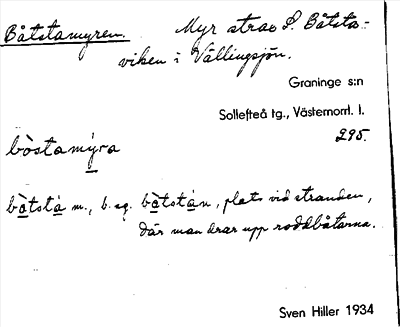 Båtstamyren. Myr strax S. Båtsta-
viken i Vällingsjön.
Graninge s:n
Sollefteå tg., Västernorrl. l.
295.
bòstamýra
bàtstà m., b. sg. bàtstàn, plats vid stranden,
där man drar upp roddbåtarna.
Sven Hiller 1934